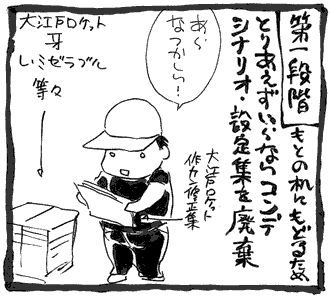 第一段階
もとの机にもどるため
とりあえずいらないコンテ
シナリオ・設定集を廃棄
あら
なつかしい!
大江戸ロケット
牙
レ・ミゼラブル
等々
大江戸ロケット
作力修正集